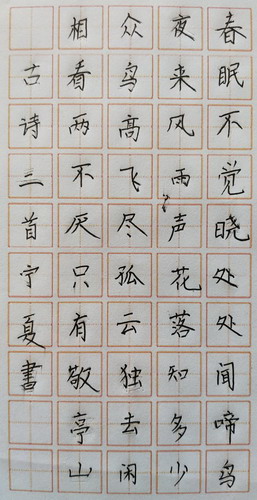 春眠不觉晓处处闻啼鸟
夜来风雨声花落知多少
众鸟高飞尽孤云独去闲
相看两不厌只有敬亭山
古诗二首宁夏書